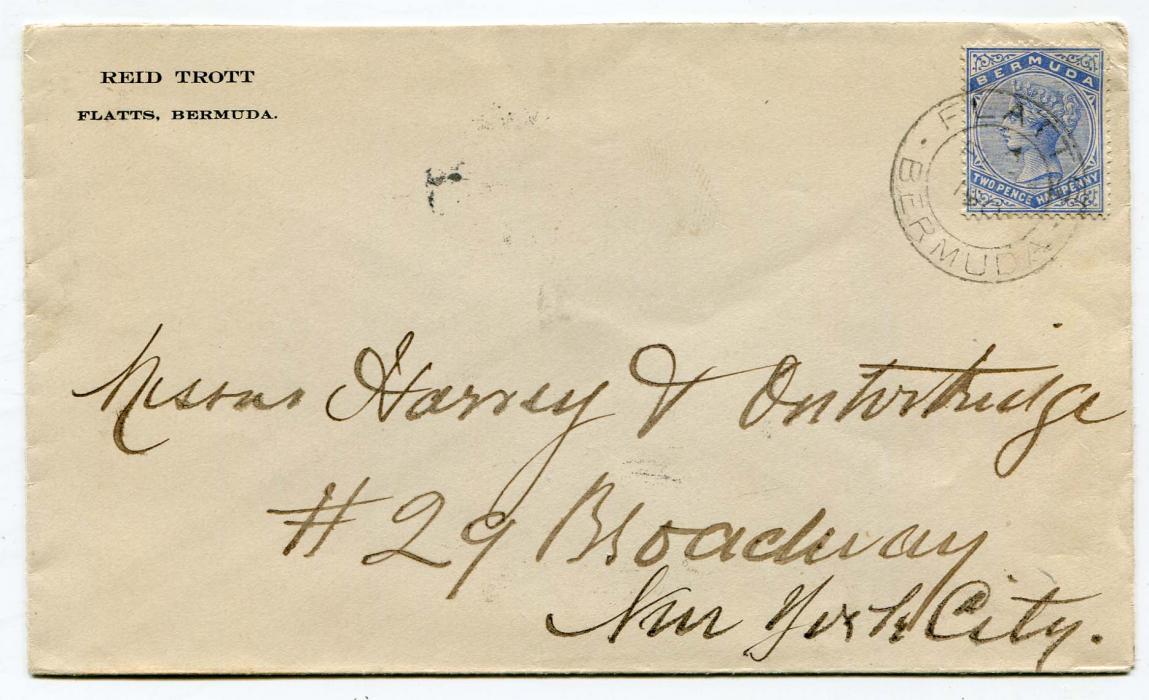 REID TROTT
FLATTS, BERMUDA.
BERMUDA
TWO PENCE HALFPENNY
FLATTS
BERMUDA
Messrs Harvey & Outerbridge
# 29 Broadway
New York City.